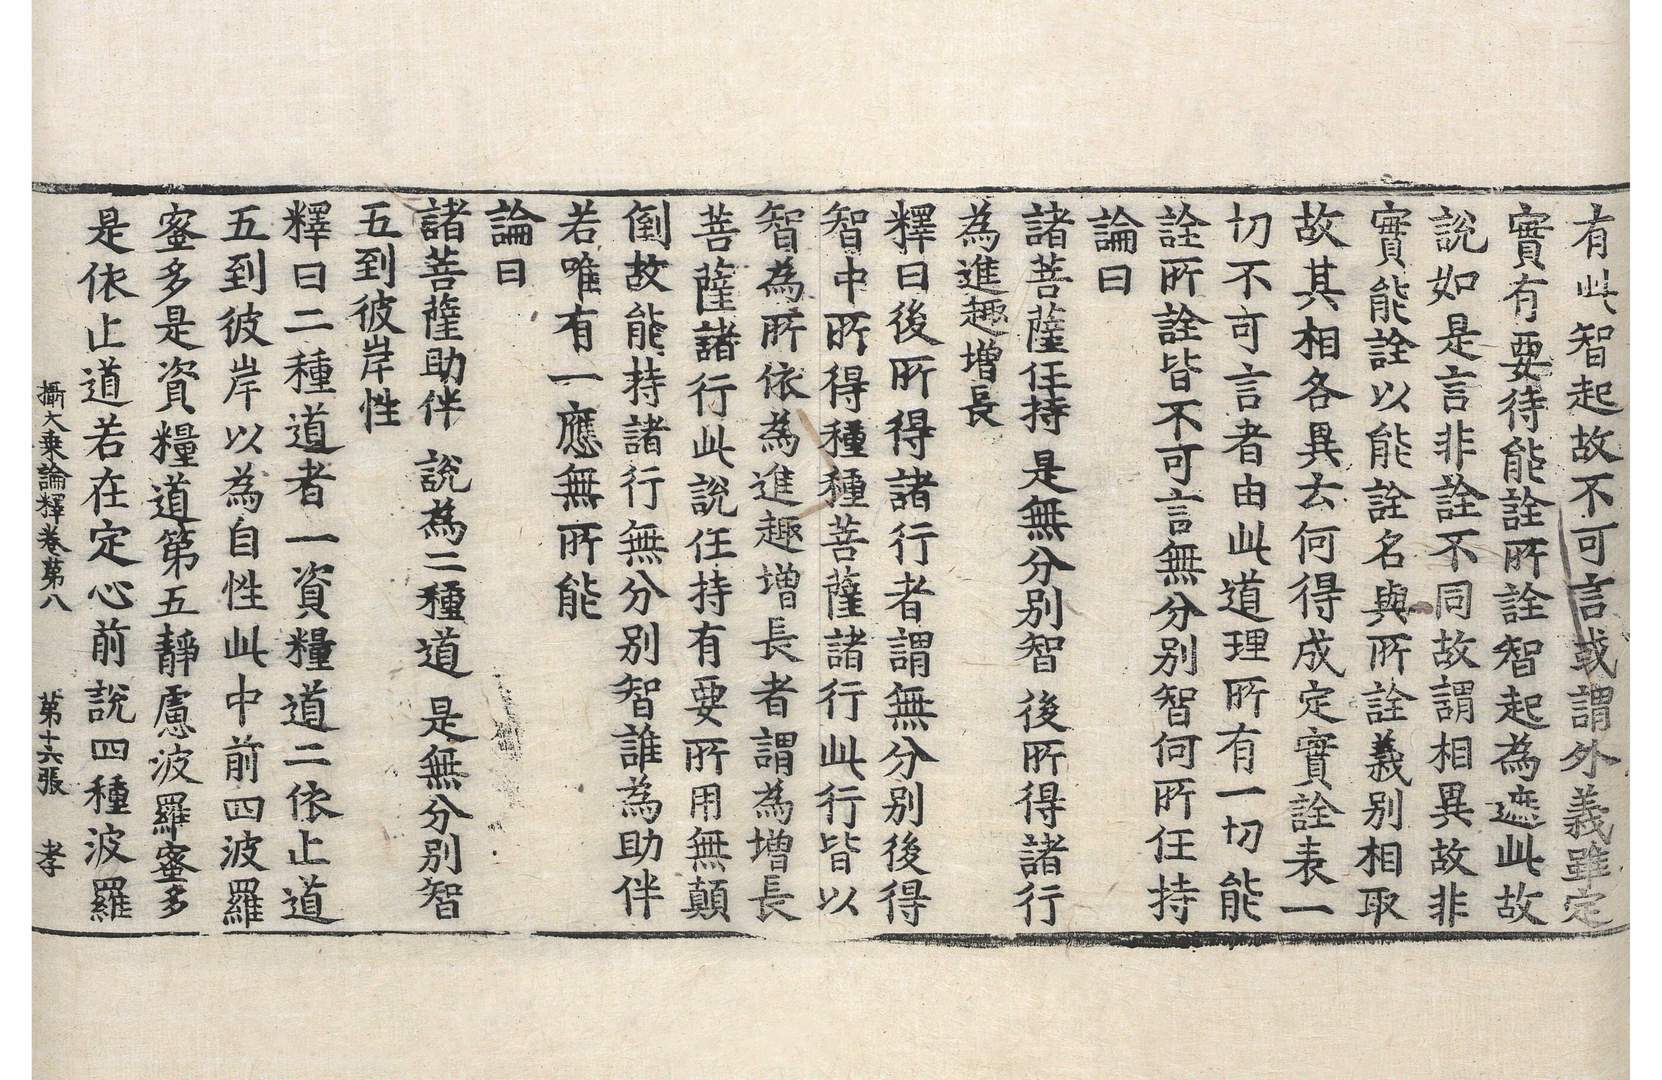 有此智起故不可言或謂外義雖定
實有要待能詮所詮智起為遮此故
說如是言非詮不同故謂相異故非
實能詮以能詮名與所詮義別相取
故其相各異云何得成定實詮表一
切不可言者由此道理所有一切能
詮所詮皆不可言無分別智何所任持
論曰
諸菩薩任持 是無分別智 後所得諸行
為進趣增長
釋曰後所得諸行者謂無分別後得
智中所得種種菩薩諸行此行皆以
智為所依為進趣增長者謂為增長
菩薩諸行此說任持有要所用無顛
倒故能持諸行無分別智誰為助伴
若唯有一應無所能
論曰
諸菩薩助伴 說為二種道 是無分別智
五到彼岸性
釋曰二種道者一資糧道二依止道
五到彼岸以為自性此中前四波羅
蜜多是資糧道第五靜慮波羅蜜多
是依止道若在定心前說四種波羅
攝大乘論釋卷第八 第十六張 孝